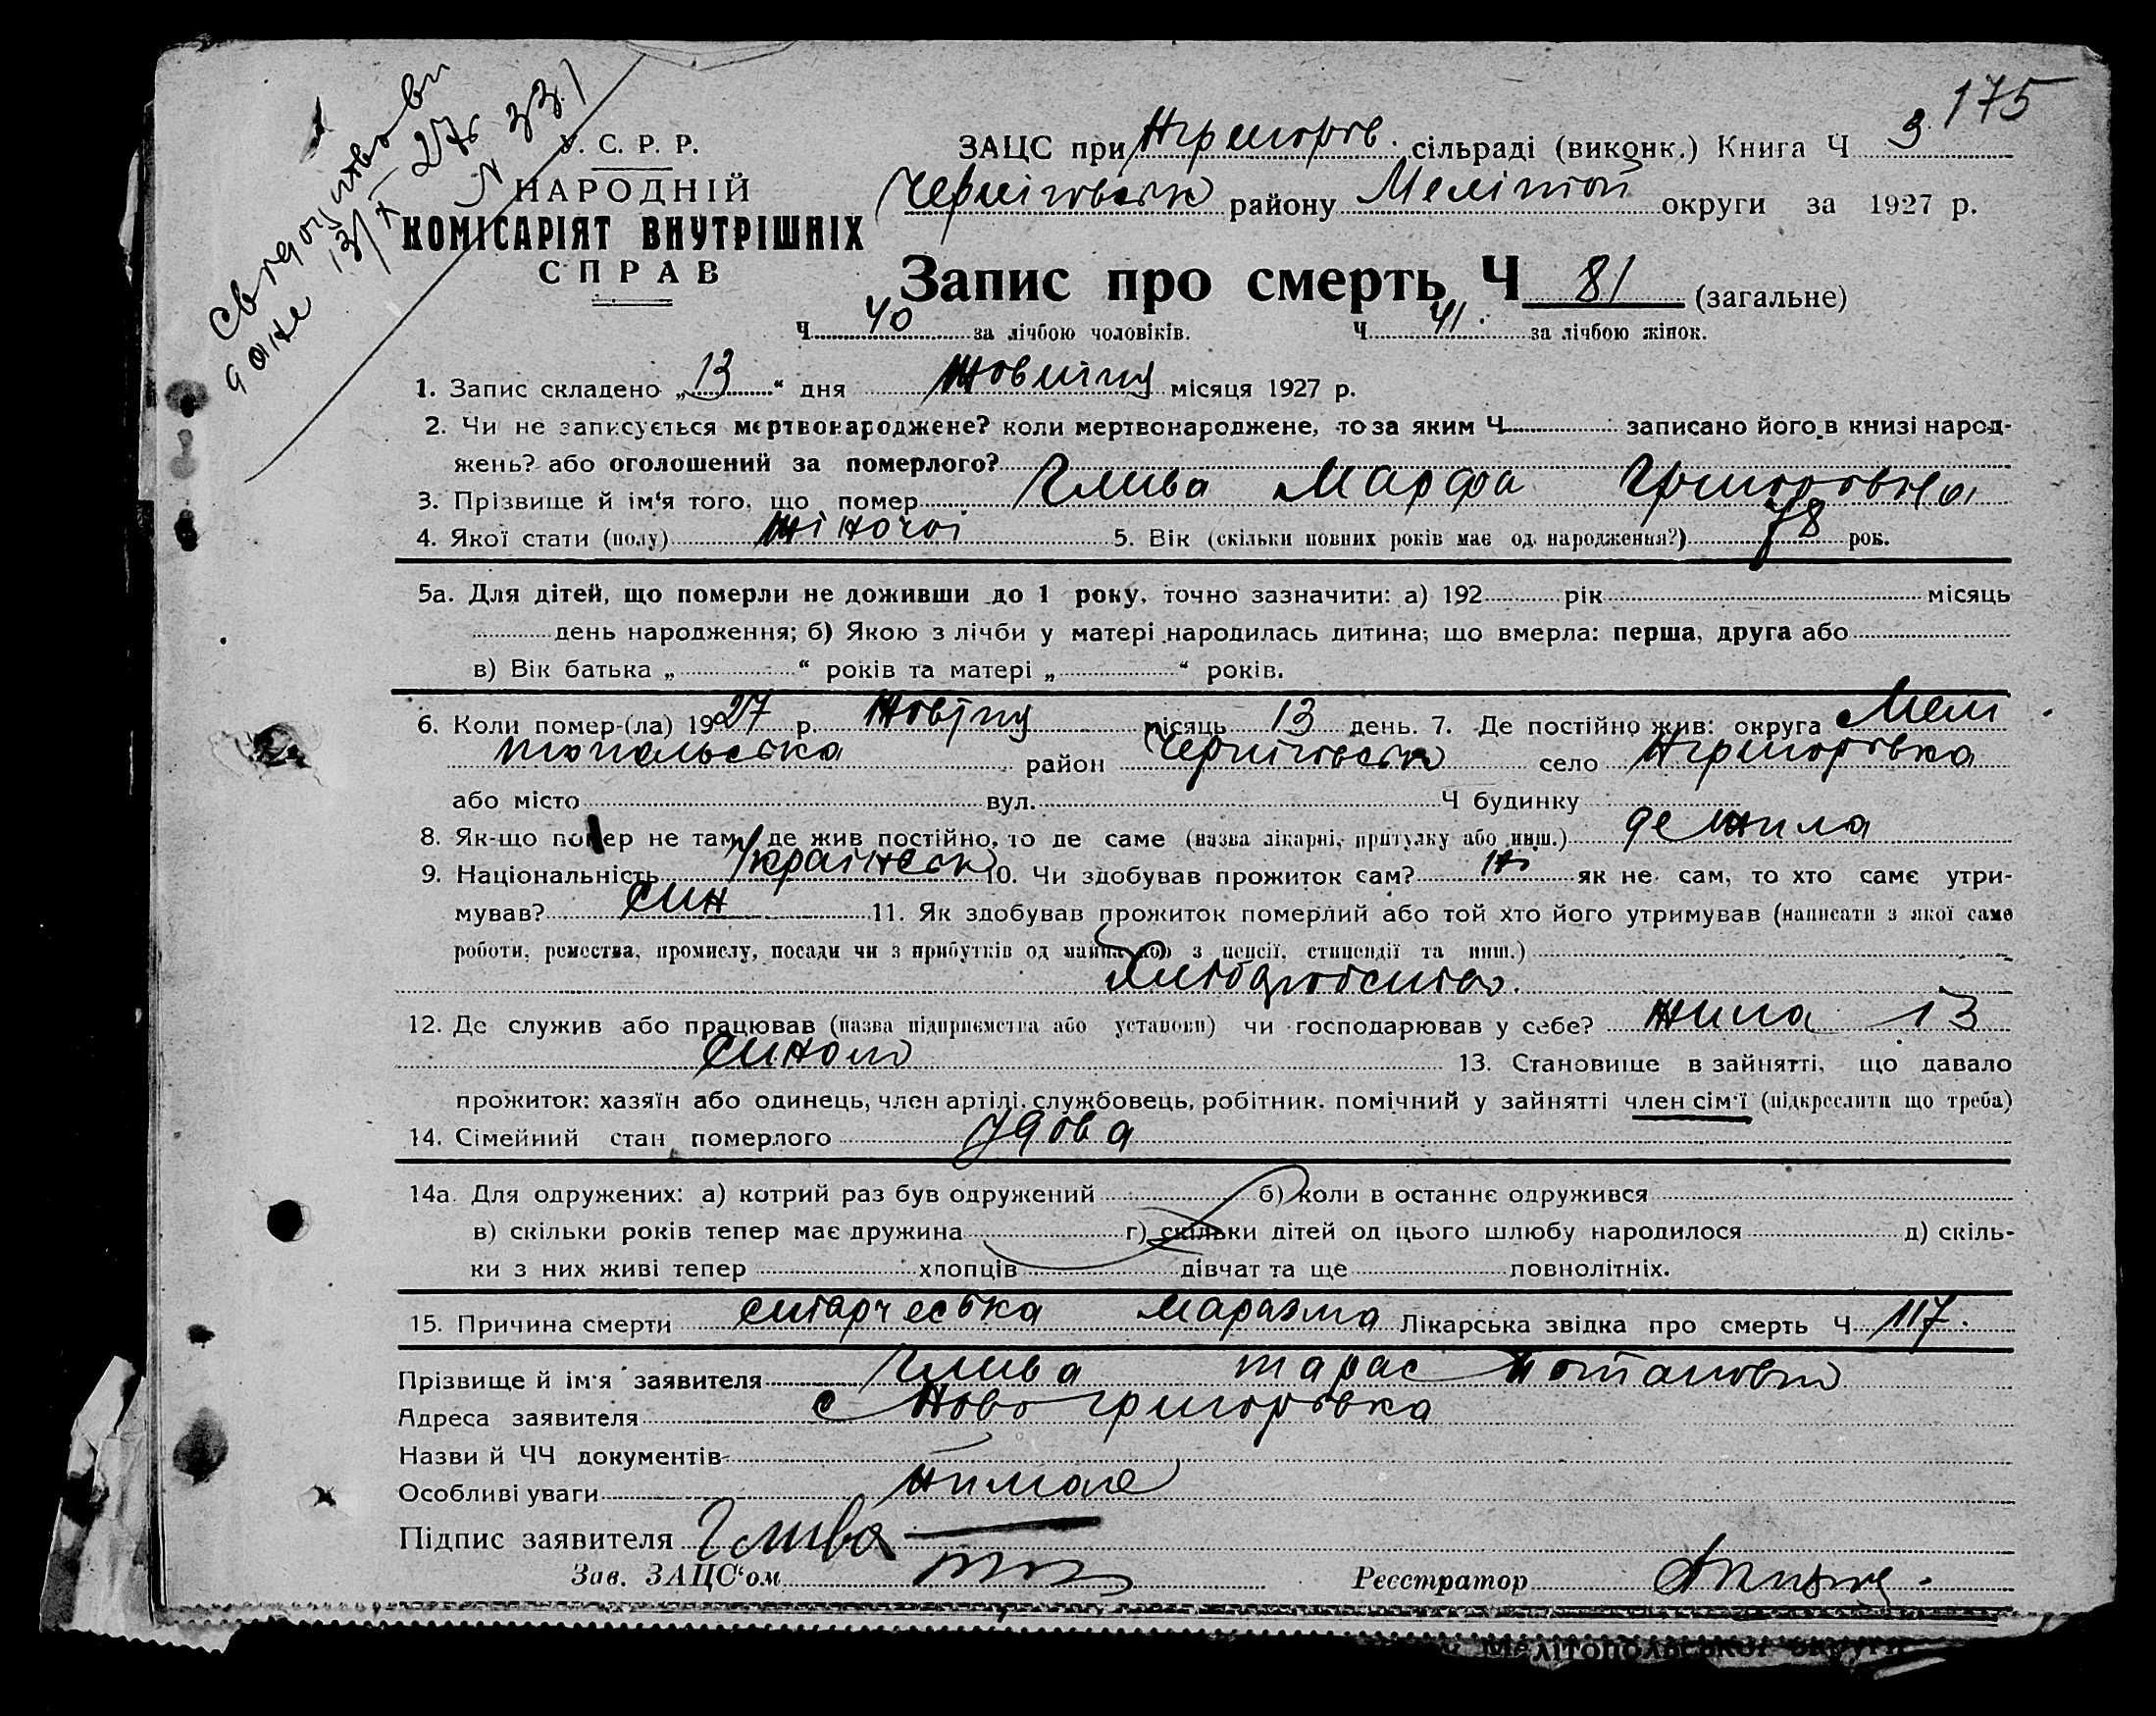 175
Свідоцтво ви
дане 13/X 27 г
N 331
У. С. Р. Р.
НАРОДНІЙ
КОМІСАРІЯТ ВНУТРІШНІХ
СПРАВ
ЗАЦС при Нгригоров. сільраді (виконк.) Книга Ч 3
Черніговськ району Меліtop округи за 1927 р.
Запис про смерть Ч 81 (загальне)
Ч 40 за лічбою чоловіків. Ч 41. за лічбою жінок.
1. Запис складено „13“ дня Жовтня місяця 1927 р.
2. Чи не записується мертвонароджене? коли мертвонароджене, то за яким Ч записано його в книзі народ-
жень? або оголошений за померлого?
3. Прізвище й ім'я того, що помер Глива Марфа Григоровна
4. Якої стати (полу) жіночоі 5. Вік (скільки повних років має од народження?) 78 рок.
5а. Для дітей, що померли не доживши до 1 року, точно зазначити: а) 192 рік місяць
день народження; б) Якою з лічби у матері народилась дитина; що вмерла: перша, друга або
в) Вік батька „ “ років та матері „ “ років.
6. Коли помер-(ла) 1927 р. Жовтня місяць 13 день. 7. Де постійно жив: округа Мелі
топольська район Черніговськ село Нгригоровка
або місто вул. Ч будинку
8. Як-що помер не там, де жив постійно, то де саме (назва лікарні, притулку або инш.) де жила
9. Національність Українськ 10. Чи здобував прожиток сам? ні як не сам, то хто саме утри-
мував? син 11. Як здобував прожиток померлий або той хто його утримував (написати з якої саме
роботи, ремества, промислу, посади чи з прибутків од майна або з пенсії, стипендії та инш.)
Хлібодробство.
12. Де служив або працював (назва підприємства або установи) чи господарював у себе? жила із
сином 13. Становище в зайнятті, що давало
прожиток: хазяїн або одинець, член артілі, службовець, робітник, помічний у зайнятті член сім'ї (підкреслити що треба)
14. Сімейний стан померлого удова
14а. Для одружених: а) котрий раз був одружений б) коли в останнє одружився
в) скільки років тепер має дружина г) скільки дітей од цього шлюбу народилося д) скіль-
ки з них живі тепер хлопців дівчат та ще повнолітніх.
15. Причина смерти старческа маразма Лікарська звідка про смерть Ч 117.
Прізвище й ім'я заявителя Глива тарас Потапович
Адреса заявителя с Ново григоровка
Назви й ЧЧ документів
Особливі уваги нимае
Підпис заявителя Глива
Зав. ЗАЦС'ом Реєстратор
Мелітопольської округи